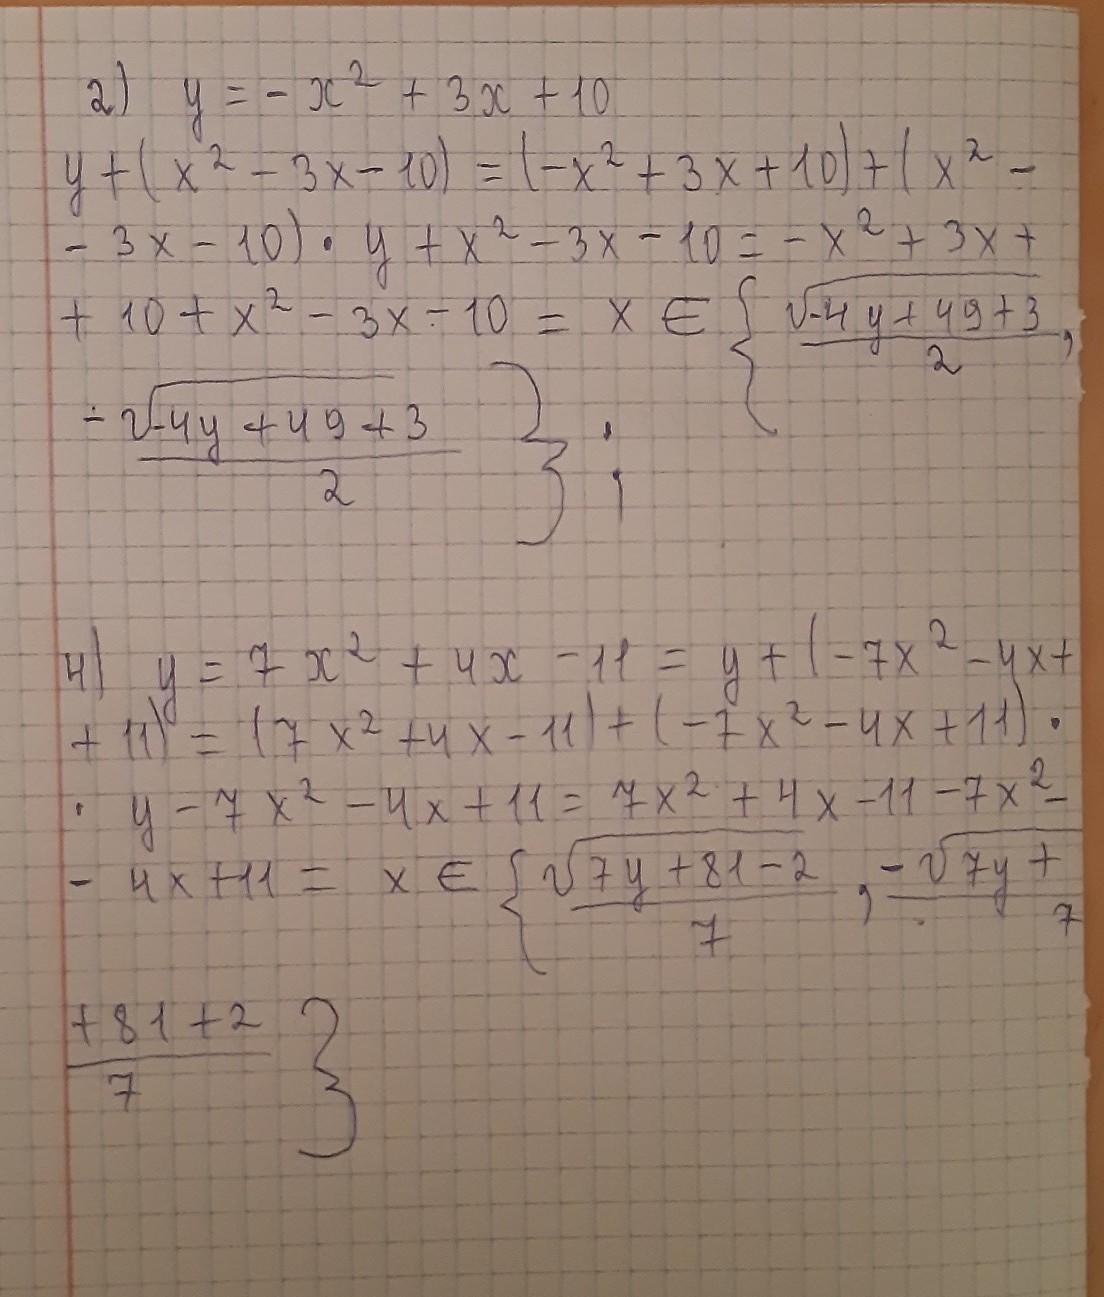 2) y = - x² + 3x + 10
y + (x² - 3x - 10) = (-x² + 3x + 10) + (x² -
- 3x - 10) · y + x² - 3x - 10 = - x² + 3x +
+ 10 + x² - 3x - 10 = x ∈ { √-4y + 49 + 3 / 2 ,
- √-4y + 49 + 3 / 2 } ;
4) y = 7x² + 4x - 11 = y + (-7x² - 4x +
+ 11) = (7x² + 4x - 11) + (-7x² - 4x + 11) ·
· y - 7x² - 4x + 11 = 7x² + 4x - 11 - 7x² -
- 4x + 11 = x ∈ { √7y + 81 - 2 / 7 , - √7y + / 7
+ 81 + 2 / 7 }